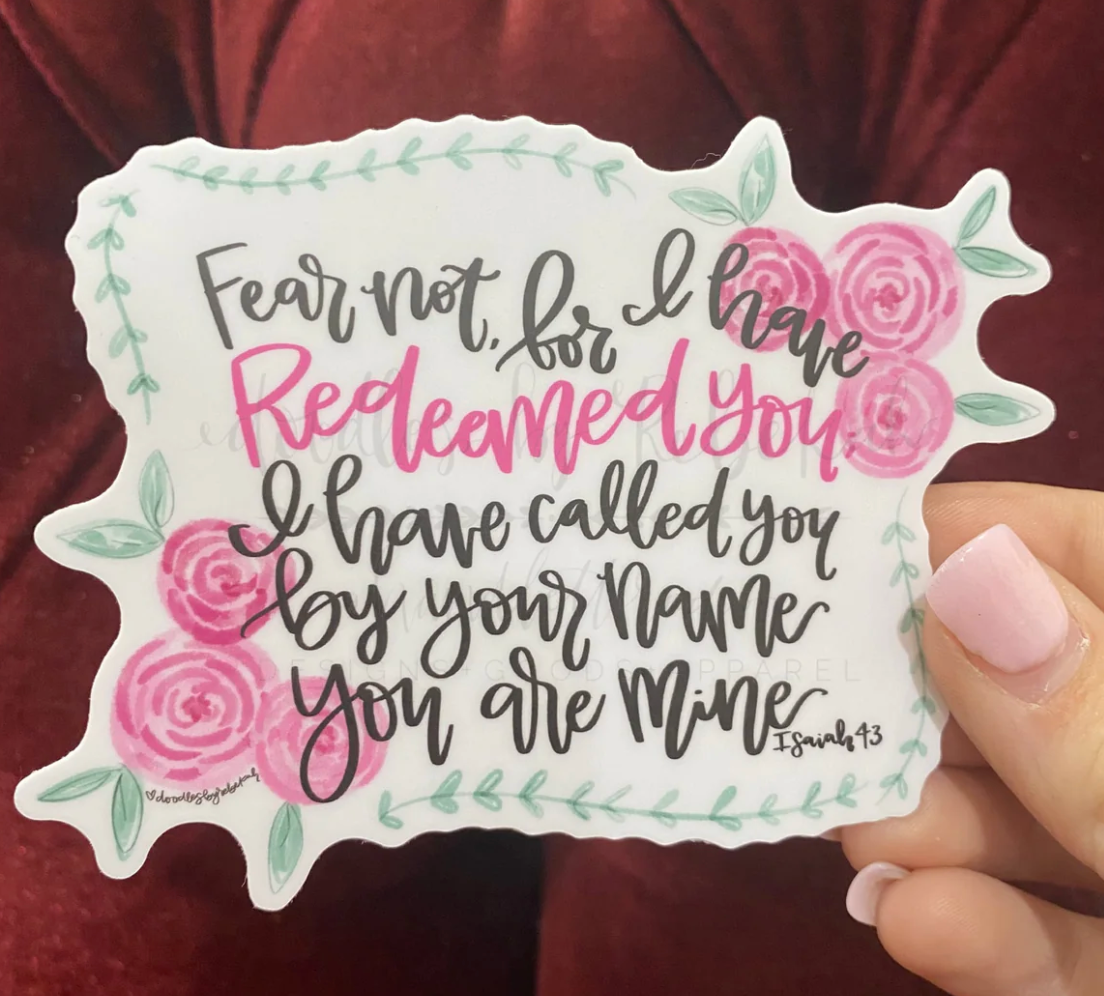 Fear not, for I have
Redeemed you.
I have called you
by your name
you are mine
Isaiah 43
doodlesbyrebekah
DESIGNS + GOODS + APPAREL